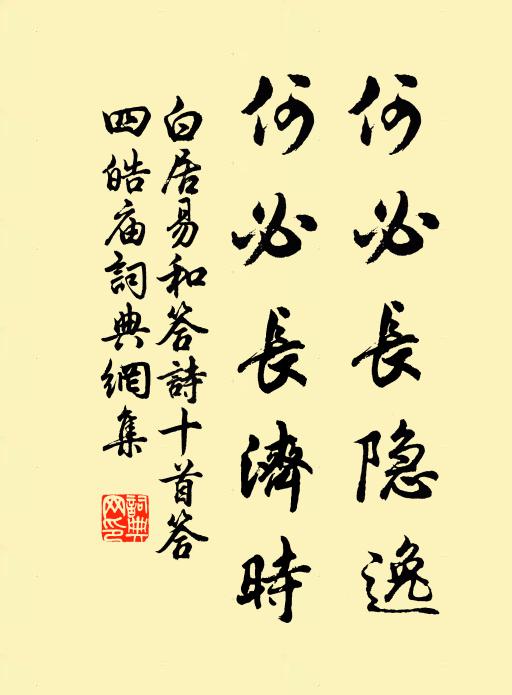 何必長隐逸
何必長濟時
白居易和答詩十首答
四皓庙詞典網集
詞典网印